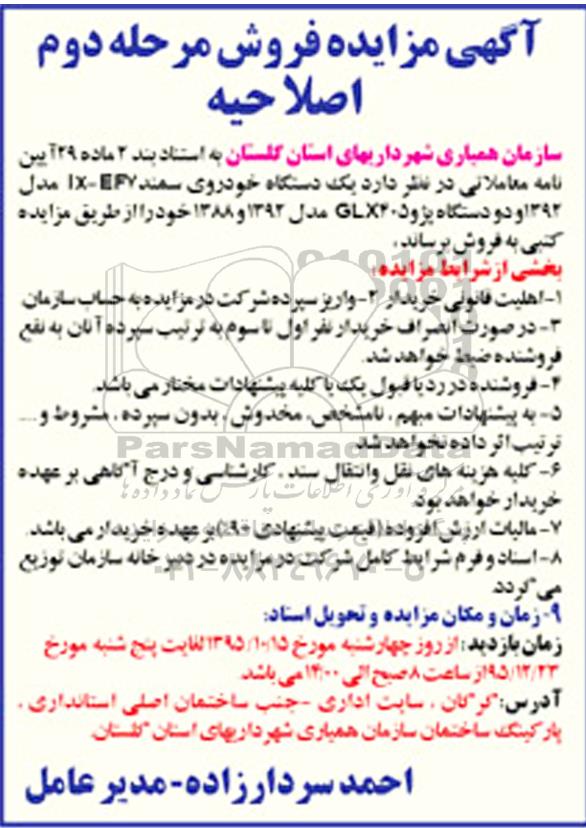 آگهی مزایده فروش مرحله دوم
اصلاحیه
سازمان همیاری شهرداریهای استان گلستان به استناد بند ۲ ماده ۲۹ آیین
نامه معاملاتی در نظر دارد یک دستگاه خودروی سمند Ix-EF7 مدل
۱۳۹۲ و دو دستگاه پژو GLX۴۰۵ مدل ۱۳۹۲ و ۱۳۸۸ خود را از طریق مزایده
کتبی به فروش برساند،
بخشی از شرایط مزایده:
۱- اهلیت قانونی خریدار ۲- واریز سپرده شرکت در مزایده به حساب سازمان.
۳- در صورت انصراف خریدار نفر اول تا سوم به ترتیب سپرده آنان به نفع
فروشنده ضبط خواهد شد.
۴- فروشنده در رد یا قبول یک یا کلیه پیشنهادات مختار می باشد.
۵- به پیشنهادات مبهم، نامشخص، مخدوش، بدون سپرده، مشروط و ....
ترتیب اثر داده نخواهد شد.
۶- کلیه هزینه های نقل وانتقال سند، کارشناسی و درج آگاهی بر عهده
خریدار خواهد بود.
۷- مالیات ارزش افزوده (قیمت پیشنهادی ۹٪) بر عهده خریدار می باشد.
۸- اسناد و فرم شرایط کامل شرکت در مزایده در دبیر خانه سازمان توزیع
می گردد.
۹- زمان و مکان مزایده و تحویل اسناد:
زمان بازدید: از روز چهارشنبه مورخ ۱۳۹۵/۱۰/۱۵ لغایت پنج شنبه مورخ
۹۵/۱۲/۲۳ از ساعت ۸ صبح الی ۱۴:۰۰ می باشد.
آدرس: گرگان، سایت اداری -جنب ساختمان اصلی استانداری،
پارکینگ ساختمان سازمان همیاری شهرداریهای استان گلستان.
احمد سردارزاده-مدیر عامل
ParsNamadData
۰۲۱-۸۸۳۴۹۶۷۰-۵